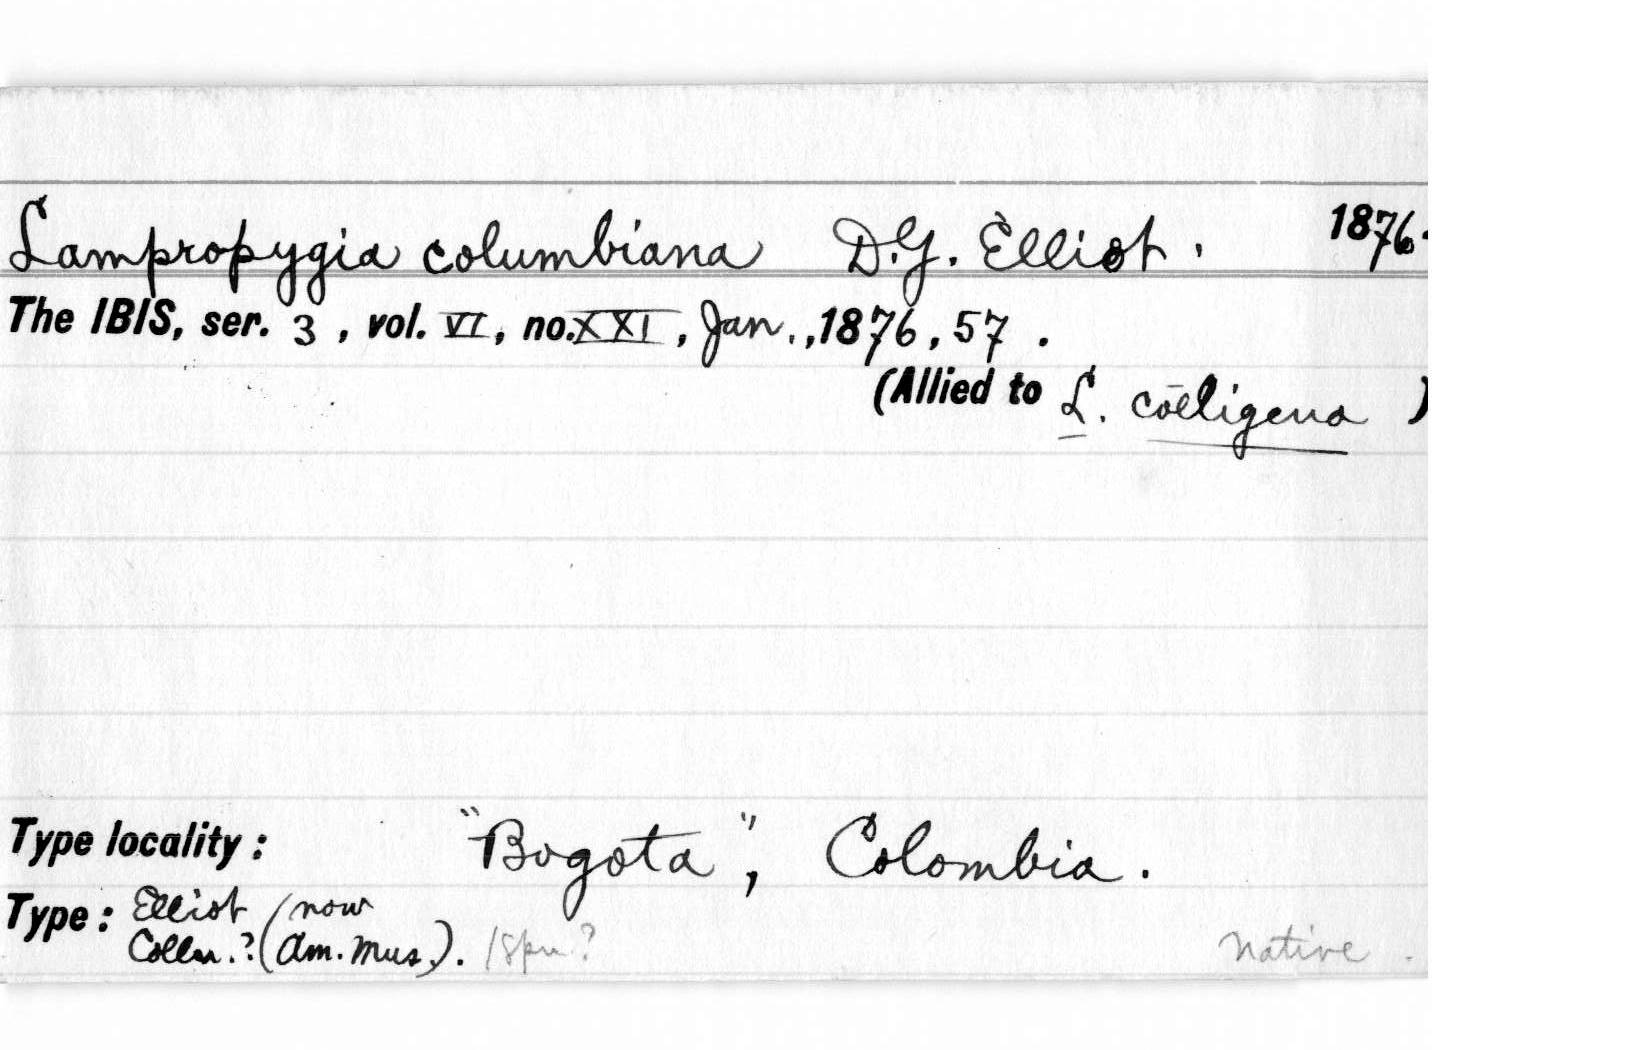 Lampropygia columbiana D.G. Elliot. 1876.
The IBIS, ser. 3, vol. VI, no. XXI, Jan., 1876, 57.
(Allied to L. cœligena)
Type locality: "Bogota", Colombia.
Type: Elliot (now
Colln.? (Am. Mus.). 1 Spn?
native.